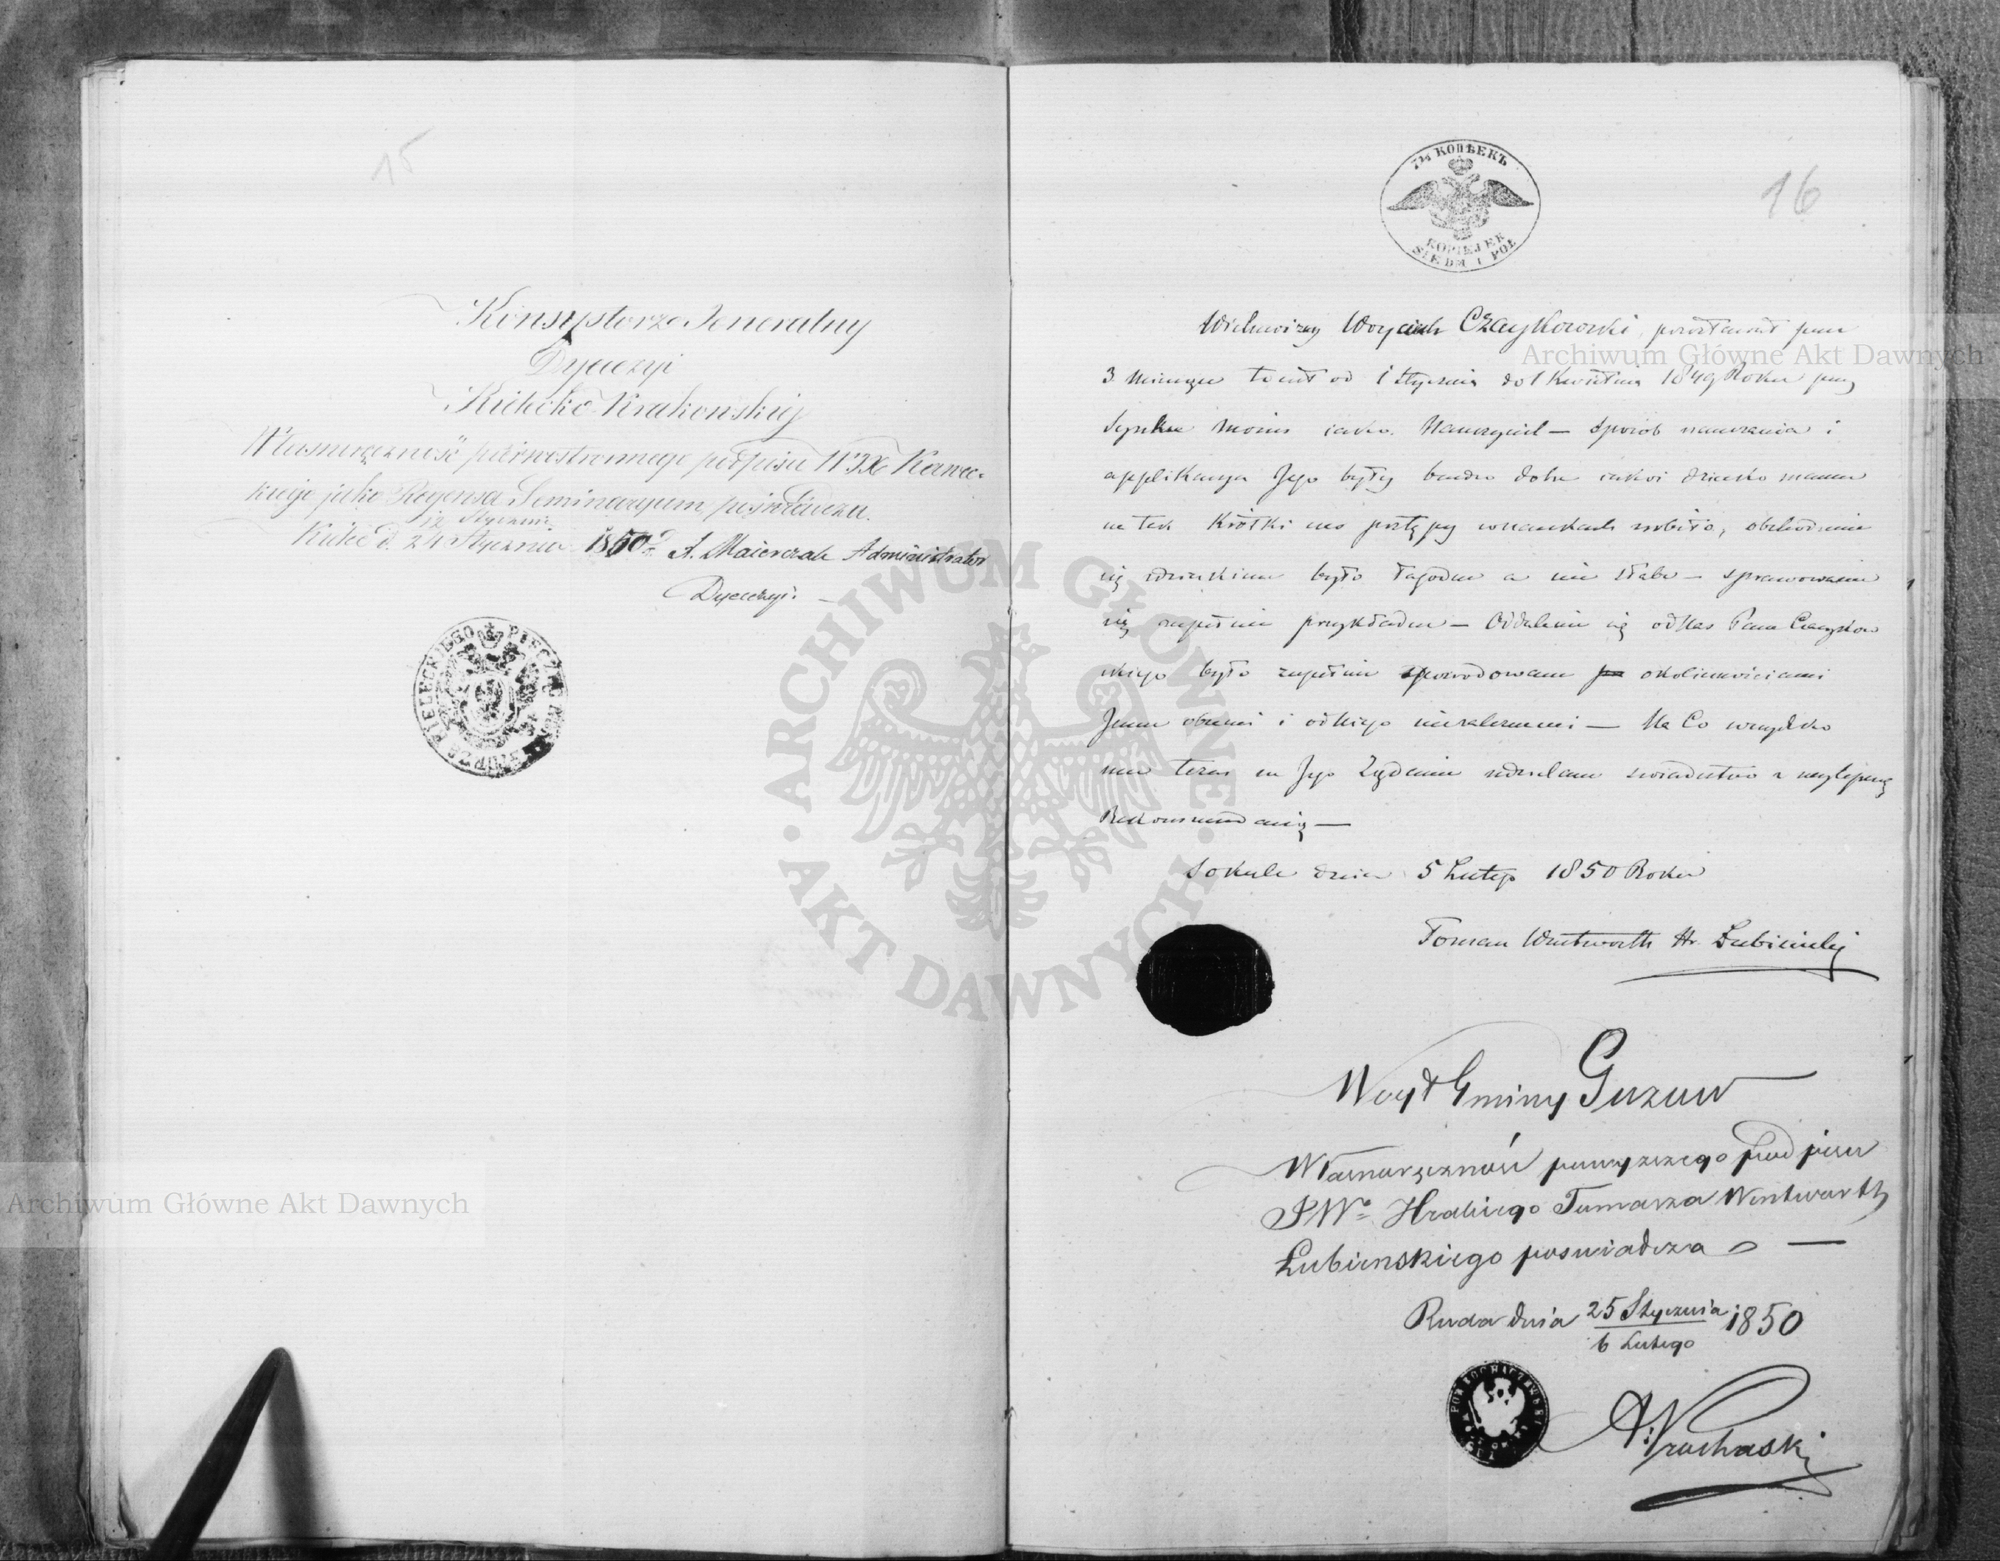 15
Konsystorz Jeneralny
Dyecezyi
Kielecko-Krakowskiej
Własnoręczność pierwostronnego podpisu WJX Kawec-
kiego jako Regensa Seminaryum poświadcza.
12 Stycznia
Kielce d. 24 Stycznia 1850 r. A. Maierczak Administrator
Dyecezyi. —
16
7½ КОПѢЕКЪ
KOPIEJEK
SIEDM I PÓŁ
Wielmożny Woyciech Czaykowski, pozostawał przez
3 Miesiące to iest od 1 Stycznia do 1 Kwietnia 1849 Roku przy
Synku Moim iako Nauczyciel — sposób nauczania i
applikacya Jego były bardzo dobre iakoż dziecko mamy
na tak krótki czas postępy w naukach zrobiło, obchodzenie
się z dzieckiem było łagodne a nie słabe — sprawowanie
się zupełnie przykładne — Oddalenie się od Nas Pana Czaykow
skiego było zupełnie spowodowane okolicznościami
Jemu obcemi i od Niego niezależnemi — Na Co wszystko
mu teraz na Jego Żądanie udzielam świadectwo z naylepszą
Rekommendacyą —
Sokule dnia 5 Lutego 1850 Roku
Tomasz Wentworth Hr. Łubieński
Woyt Gminy Guzow
Własnoręczność powyższego podpisu
JWo Hrabiego Tomasza Wentworth
Łubienskiego poswiadcza —
Ruda dnia 25 Stycznia 1850
6 Lutego
A. Prochaski
Archiwum Główne Akt Dawnych
Archiwum Główne Akt Dawnych
ARCHIWUM GŁÓWNE AKT DAWNYCH